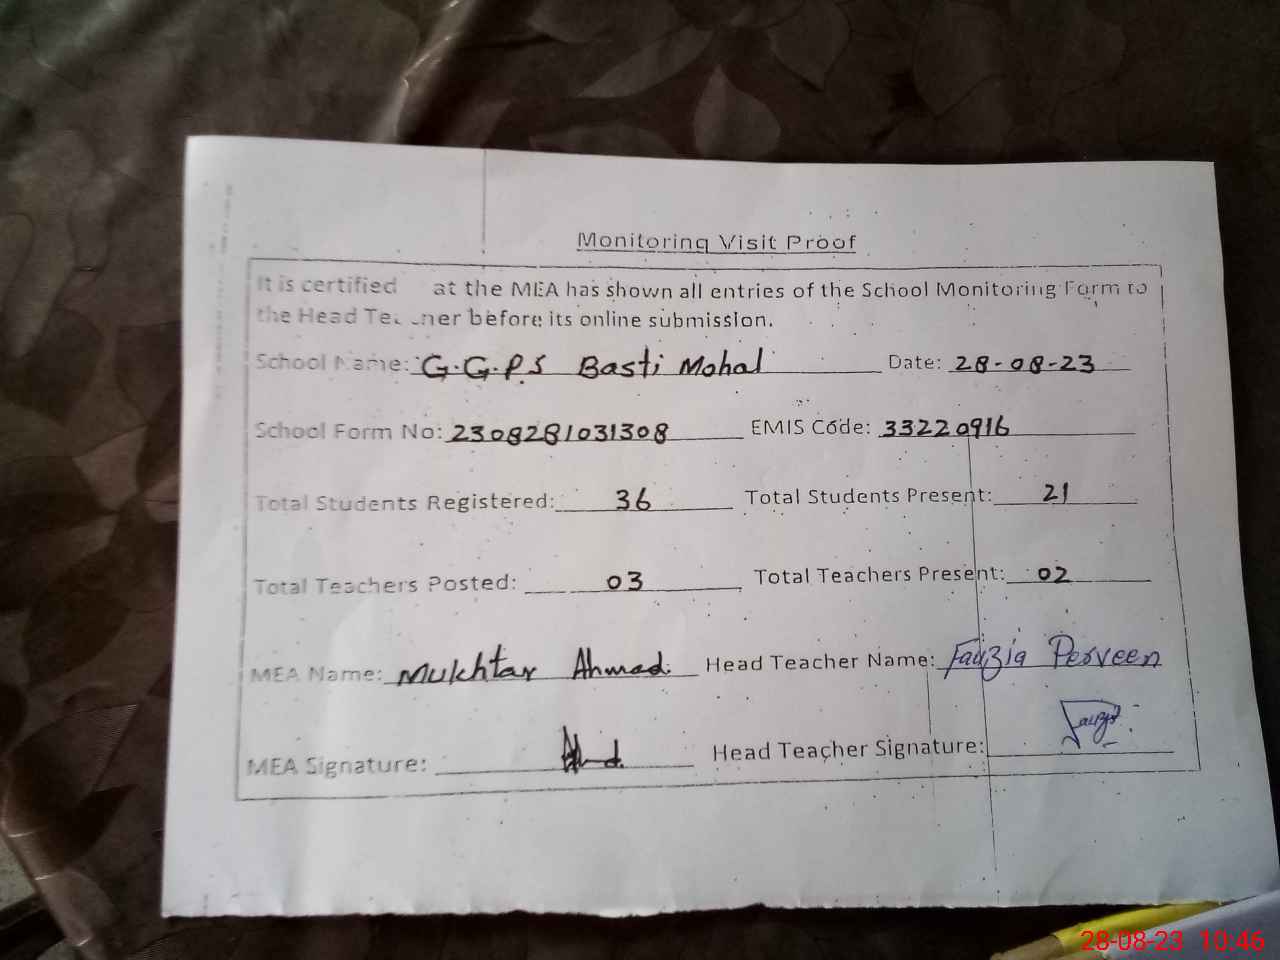 Monitoring Visit Proof
It is certified at the MEA has shown all entries of the School Monitoring Form to
the Head Teacher before its online submission.
School Name: G.G.P.S Basti Mohal Date: 28-08-23
School Form No: 2308281031308 EMIS Code: 33220916
Total Students Registered: 36 Total Students Present: 21
Total Teachers Posted: 03 Total Teachers Present: 02
MEA Name: Mukhtar Ahmad. Head Teacher Name: Fauzia Perveen
MEA Signature: Head Teacher Signature: Fauzia
28-08-23 10:46